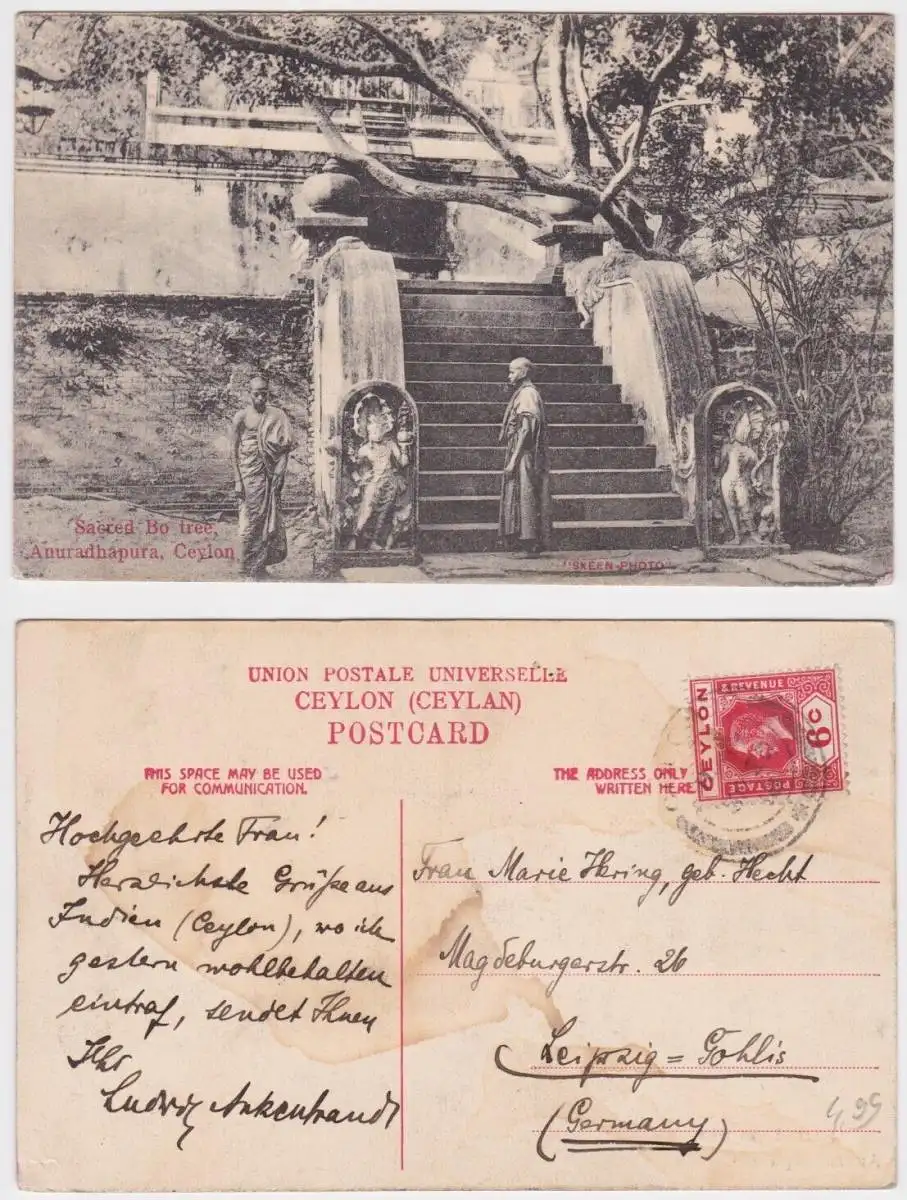 Sacred Bo tree,
Anuradhapura, Ceylon
"SKEEN-PHOTO"
UNION POSTALE UNIVERSELLE
CEYLON (CEYLAN)
POSTCARD
THIS SPACE MAY BE USED
FOR COMMUNICATION.
THE ADDRESS ONLY
WRITTEN HERE
CEYLON
& REVENUE
POSTAGE
6c
Hochgeehrte Frau!
Herzlichste Grüße aus
Indien (Ceylon), wo ich
gestern wohlbehalten
eintraf, sendet Ihnen
Ihr
Ludwig Ankenbrand
Frau Marie Hering, geb. Hecht
Magdeburgerstr. 26
Leipzig = Gohlis
(Germany)
4,95